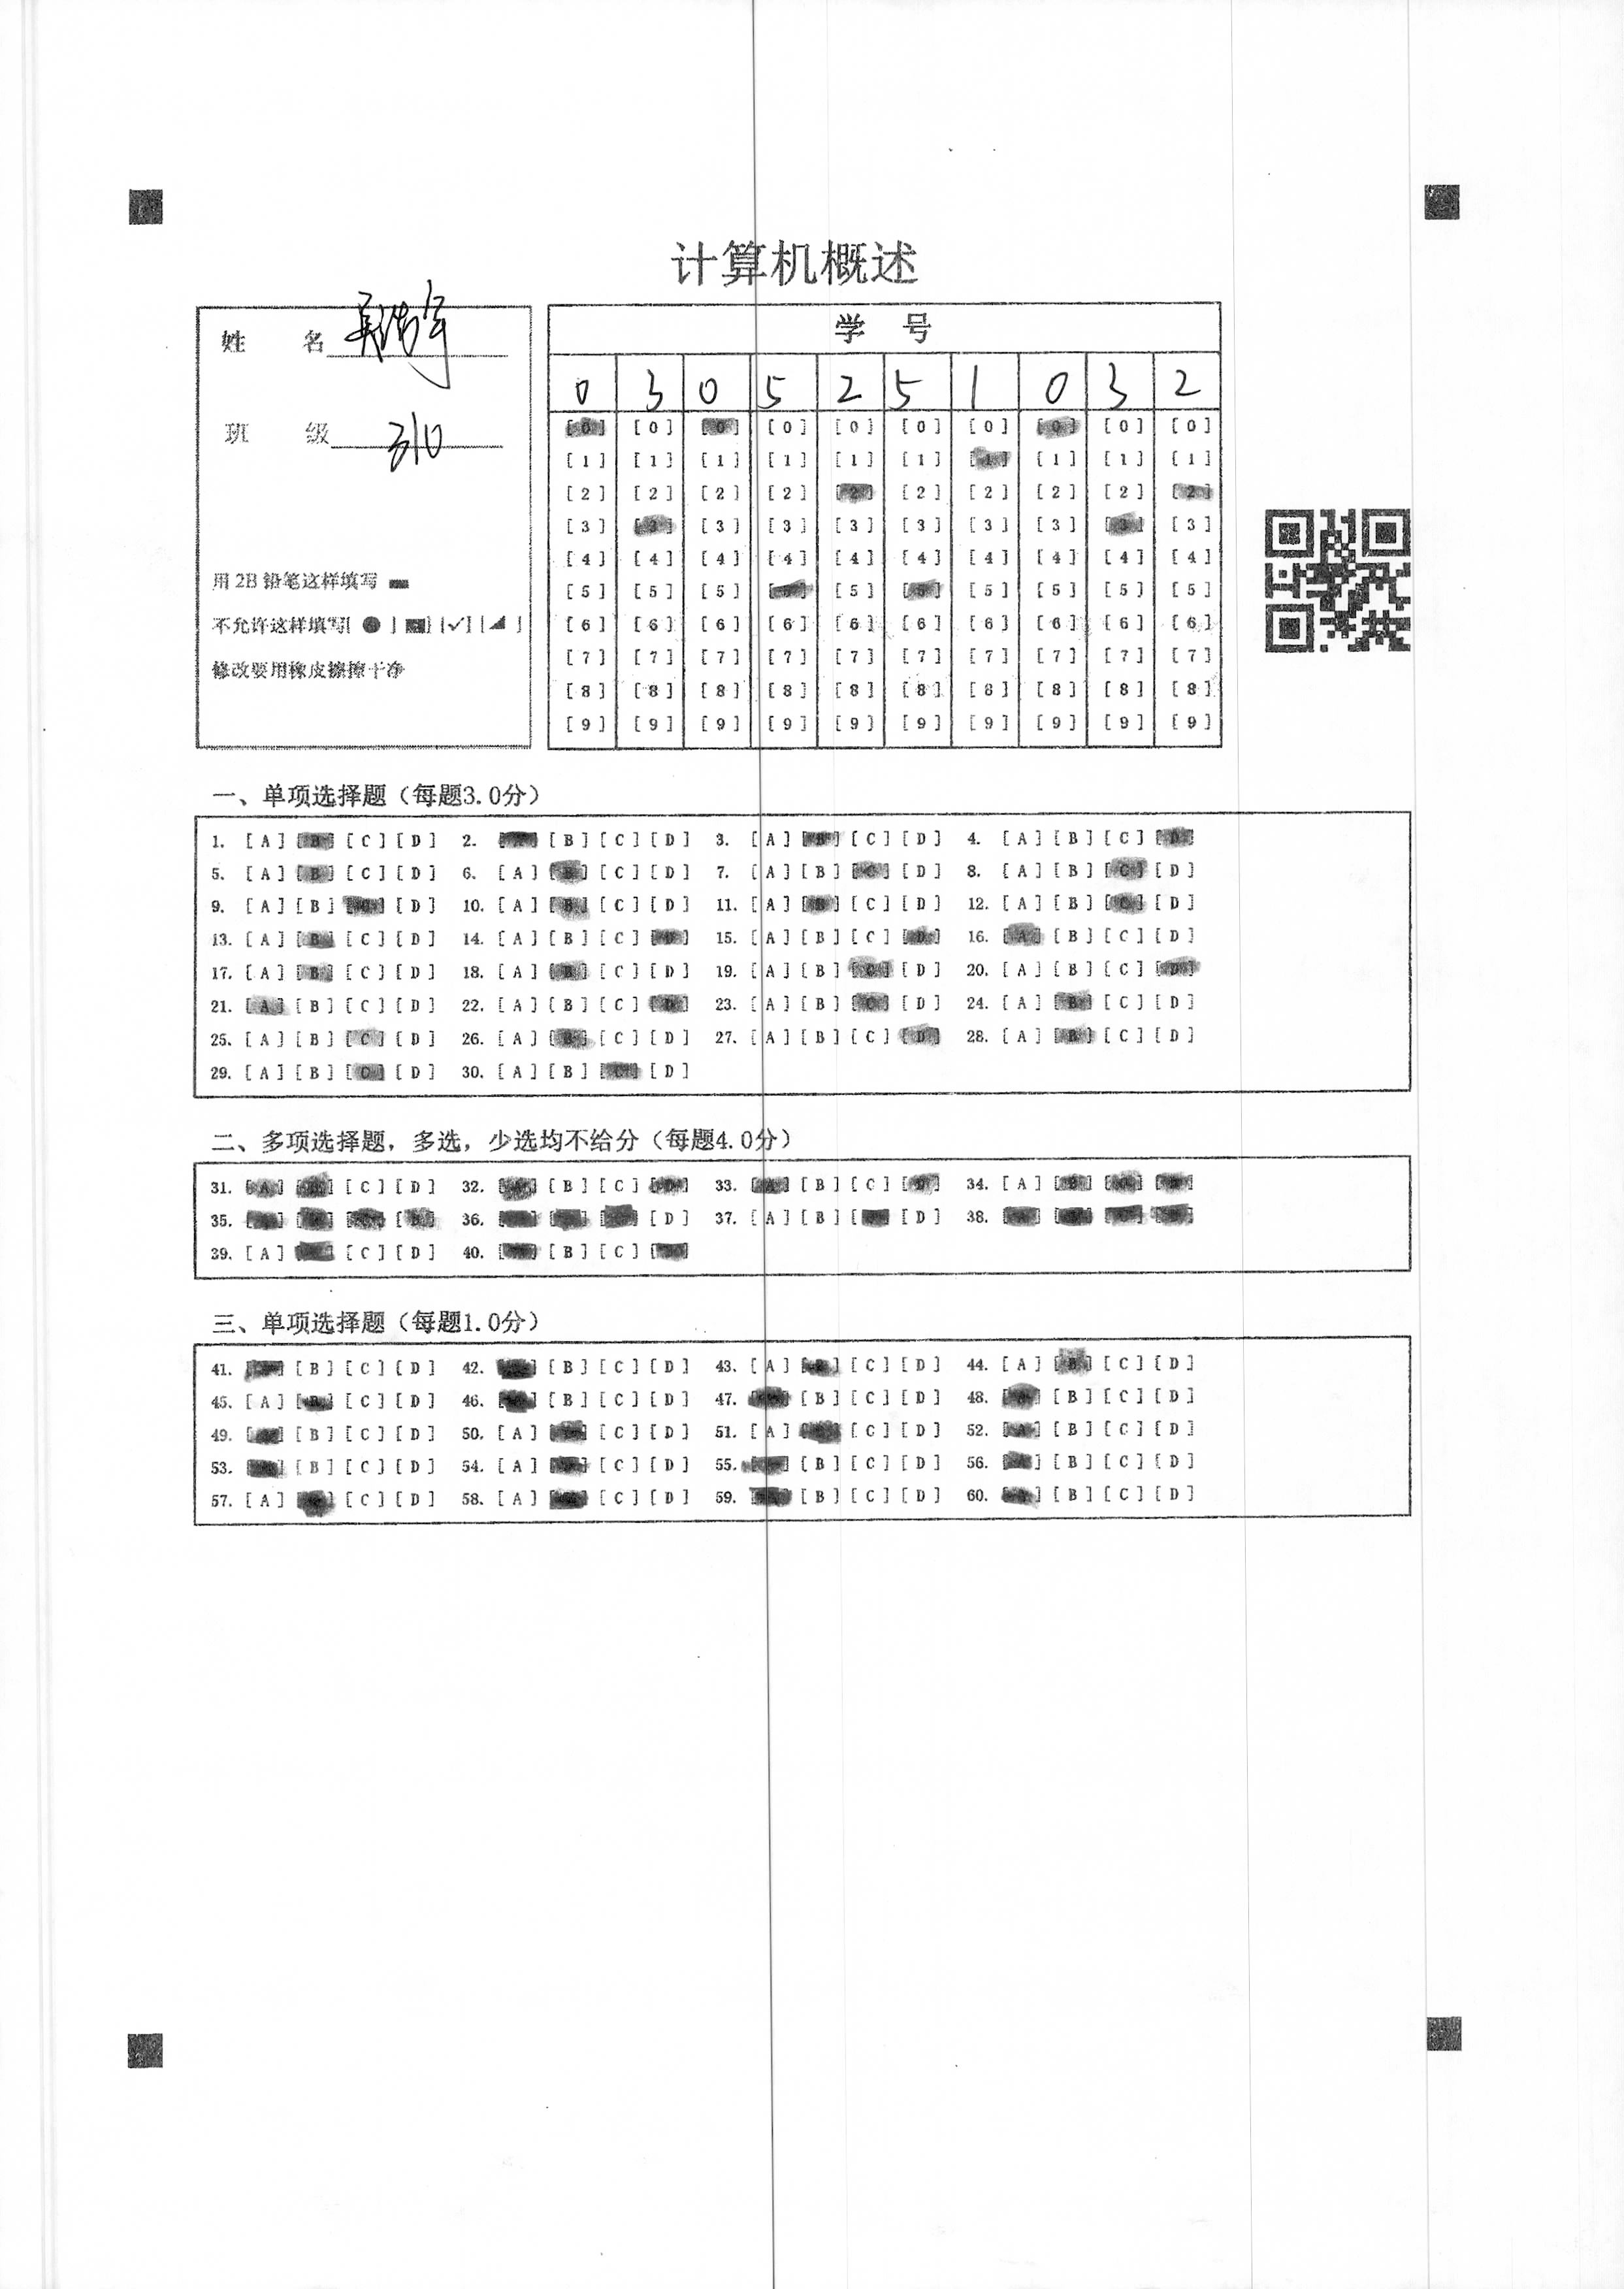 计算机概述
姓 名
班 级 310
用 2B 铅笔这样填写
不允许这样填写[ ● ] [ ] [✓] [◢ ]
修改要用橡皮擦擦干净
学 号
0 3 0 5 2 5 1 0 3 2
[0] [0] [0] [0] [0] [0] [0] [0] [0] [0]
[1] [1] [1] [1] [1] [1] [1] [1] [1] [1]
[2] [2] [2] [2] [2] [2] [2] [2] [2] [2]
[3] [3] [3] [3] [3] [3] [3] [3] [3] [3]
[4] [4] [4] [4] [4] [4] [4] [4] [4] [4]
[5] [5] [5] [5] [5] [5] [5] [5] [5] [5]
[6] [6] [6] [6] [6] [6] [6] [6] [6] [6]
[7] [7] [7] [7] [7] [7] [7] [7] [7] [7]
[8] [8] [8] [8] [8] [8] [8] [8] [8] [8]
[9] [9] [9] [9] [9] [9] [9] [9] [9] [9]
一、单项选择题（每题3.0分）
1. [A] [B] [C] [D] 2. [ ] [B] [C] [D] 3. [A] [B] [C] [D] 4. [A] [B] [C] [D]
5. [A] [B] [C] [D] 6. [A] [B] [C] [D] 7. [A] [B] [C] [D] 8. [A] [B] [C] [D]
9. [A] [B] [C] [D] 10. [A] [B] [C] [D] 11. [A] [B] [C] [D] 12. [A] [B] [C] [D]
13. [A] [B] [C] [D] 14. [A] [B] [C] [D] 15. [A] [B] [C] [D] 16. [A] [B] [C] [D]
17. [A] [B] [C] [D] 18. [A] [B] [C] [D] 19. [A] [B] [C] [D] 20. [A] [B] [C] [D]
21. [A] [B] [C] [D] 22. [A] [B] [C] [D] 23. [A] [B] [C] [D] 24. [A] [B] [C] [D]
25. [A] [B] [C] [D] 26. [A] [B] [C] [D] 27. [A] [B] [C] [D] 28. [A] [B] [C] [D]
29. [A] [B] [C] [D] 30. [A] [B] [C] [D]
二、多项选择题，多选，少选均不给分（每题4.0分）
31. [A] [B] [C] [D] 32. [A] [B] [C] [D] 33. [A] [B] [C] [D] 34. [A] [B] [C] [D]
35. [ ] [ ] [ ] [ ] 36. [ ] [ ] [ ] [D] 37. [A] [B] [ ] [D] 38. [A] [ ] [C] [ ]
39. [A] [ ] [C] [D] 40. [ ] [B] [C] [ ]
三、单项选择题（每题1.0分）
41. [ ] [B] [C] [D] 42. [ ] [B] [C] [D] 43. [A] [ ] [C] [D] 44. [A] [B] [C] [D]
45. [A] [ ] [C] [D] 46. [ ] [B] [C] [D] 47. [ ] [B] [C] [D] 48. [A] [B] [C] [D]
49. [ ] [B] [C] [D] 50. [A] [ ] [C] [D] 51. [A] [ ] [C] [D] 52. [A] [B] [C] [D]
53. [ ] [B] [C] [D] 54. [A] [ ] [C] [D] 55. [ ] [B] [C] [D] 56. [A] [B] [C] [D]
57. [A] [ ] [C] [D] 58. [A] [ ] [C] [D] 59. [ ] [B] [C] [D] 60. [A] [B] [C] [D]